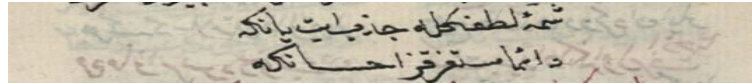 شمهٔ لطفنكله جاذب ايت يانكه
دائما مستغرق قز احسانكه